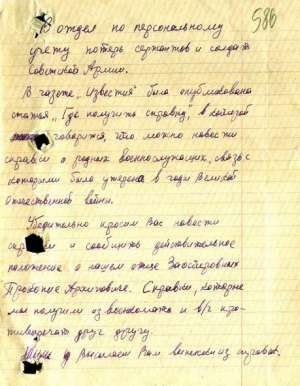 586
В отдел по персональному
учету потерь сержантов и солдат
Советской Армии.
В газете „Известия" была опубликована
статья „Где получить справку", в которой
говорится, что можно навести
справки о родных военнослужащих, связь с
которыми была утеряна в годы Великой
Отечественной войны.
Убедительно просим Вас навести
справки и сообщить действительное
положение о нашем отце
Прокопие Архиповиче. Справки, которые
мы получили из военкомата и в/ч про-
тиворечат друг другу.
Высылаем Вам из справок.